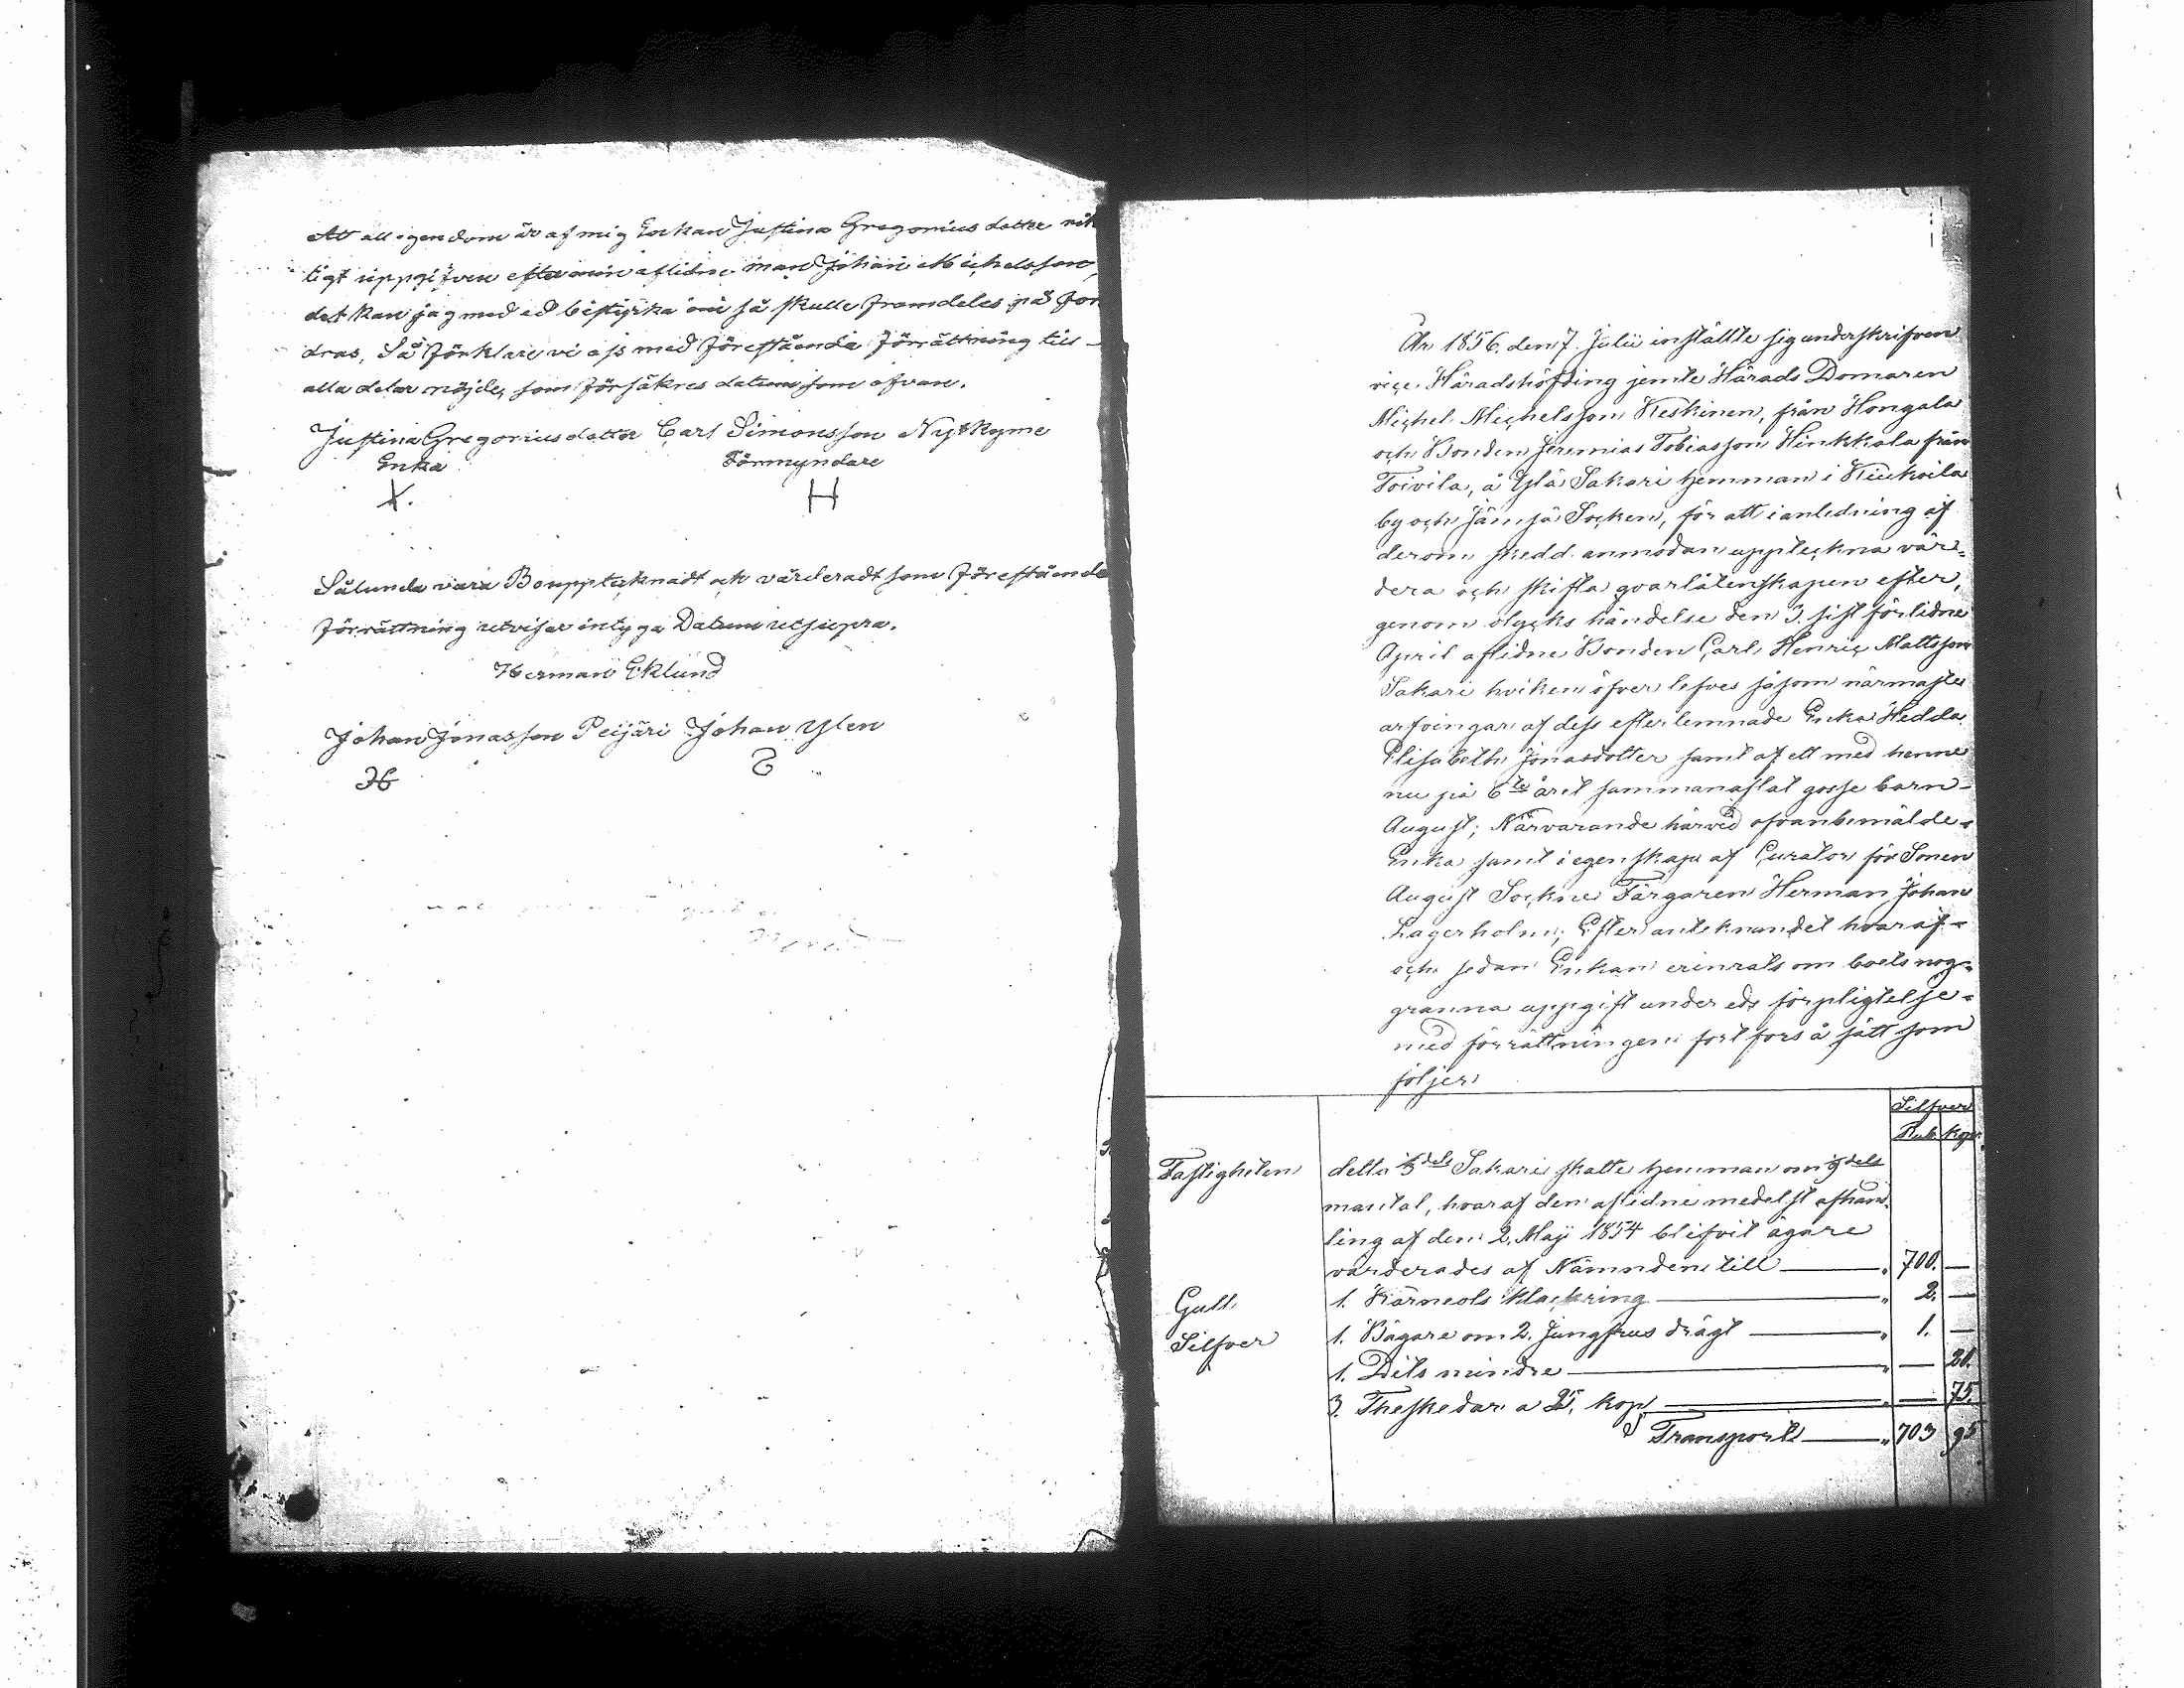 Att all egendom är af mig Enkan Justina Gregorius dotter rik
tigt uppgifven efter min aflidne man Johan Michelsson,
det kan jag med ed bestyrka om så skulle framdeles på for
dras, Så förklare vi oss med förestående förrättning till
alla delar nöjde, som försäkres datum som ofvan.
Justina Gregoriusdotter Carl Simonsson Nyrkyme
Enka Förmyndare
X. H
Sålunda vara Bouppteknadt och värderadt som förestående
förrättning utvisar intyga Datum ut supra.
Herman Eklund
Johan Jonasson Peijäri Johan Ylen
År 1856, den 7. Julii inställte sig underskrifven
vice Häradshöfding jemte Härads Domaren
Michel Michelsson Keskinen, från Hongala
och Bonden Jeremias Tobiasson Hinkkala från
Toivila, å Ylä Sakari hemman i Kiukoila
by och Jämsä Socken, för att i anledning af
derom skedd anmodan uppteckna vär=
dera och skifta qvarlåtenskapen efter,
genom olycks händelse den 3. sist förlidne
April aflidne Bonden Carl Henric Mattsson
Sakari hvilken öfverlefves såsom närmaste
arfvingar af dess efterlemnade Enka Hedda
Elisabeth Jonasdotter samt af ett med henne
nu på 6te året sammanaflat gosse barn
August; Närvarande härvid ofvanbemälde
Enka samt i egenskap af Curator för Sonen
August Sockne Färgaren Herman Johan
Lagerholm; Efter anteknandet hvaraf
och sedan Enkan erinrats om boets nog=
granna uppgift under eds förpligtelse
med förrättningen fortfors å sätt som
följer
Silfver
Rub. Kop.
Fastigheten detta Sakari skatte hemman om dels
mantal, hvaraf den aflidne medelst afhand
ling af den 2. Maji 1854 blifvit ägare
värderades af Nämnden till " 700. —
Guld 1. Karneols klackring " 2. —
Silfver 1. Bägare om 2. Jungfrus drägt " 1. —
1. Dito mindre " — 20.
3. Theskedar a 25. kop " — 75.
Transport " 703 95